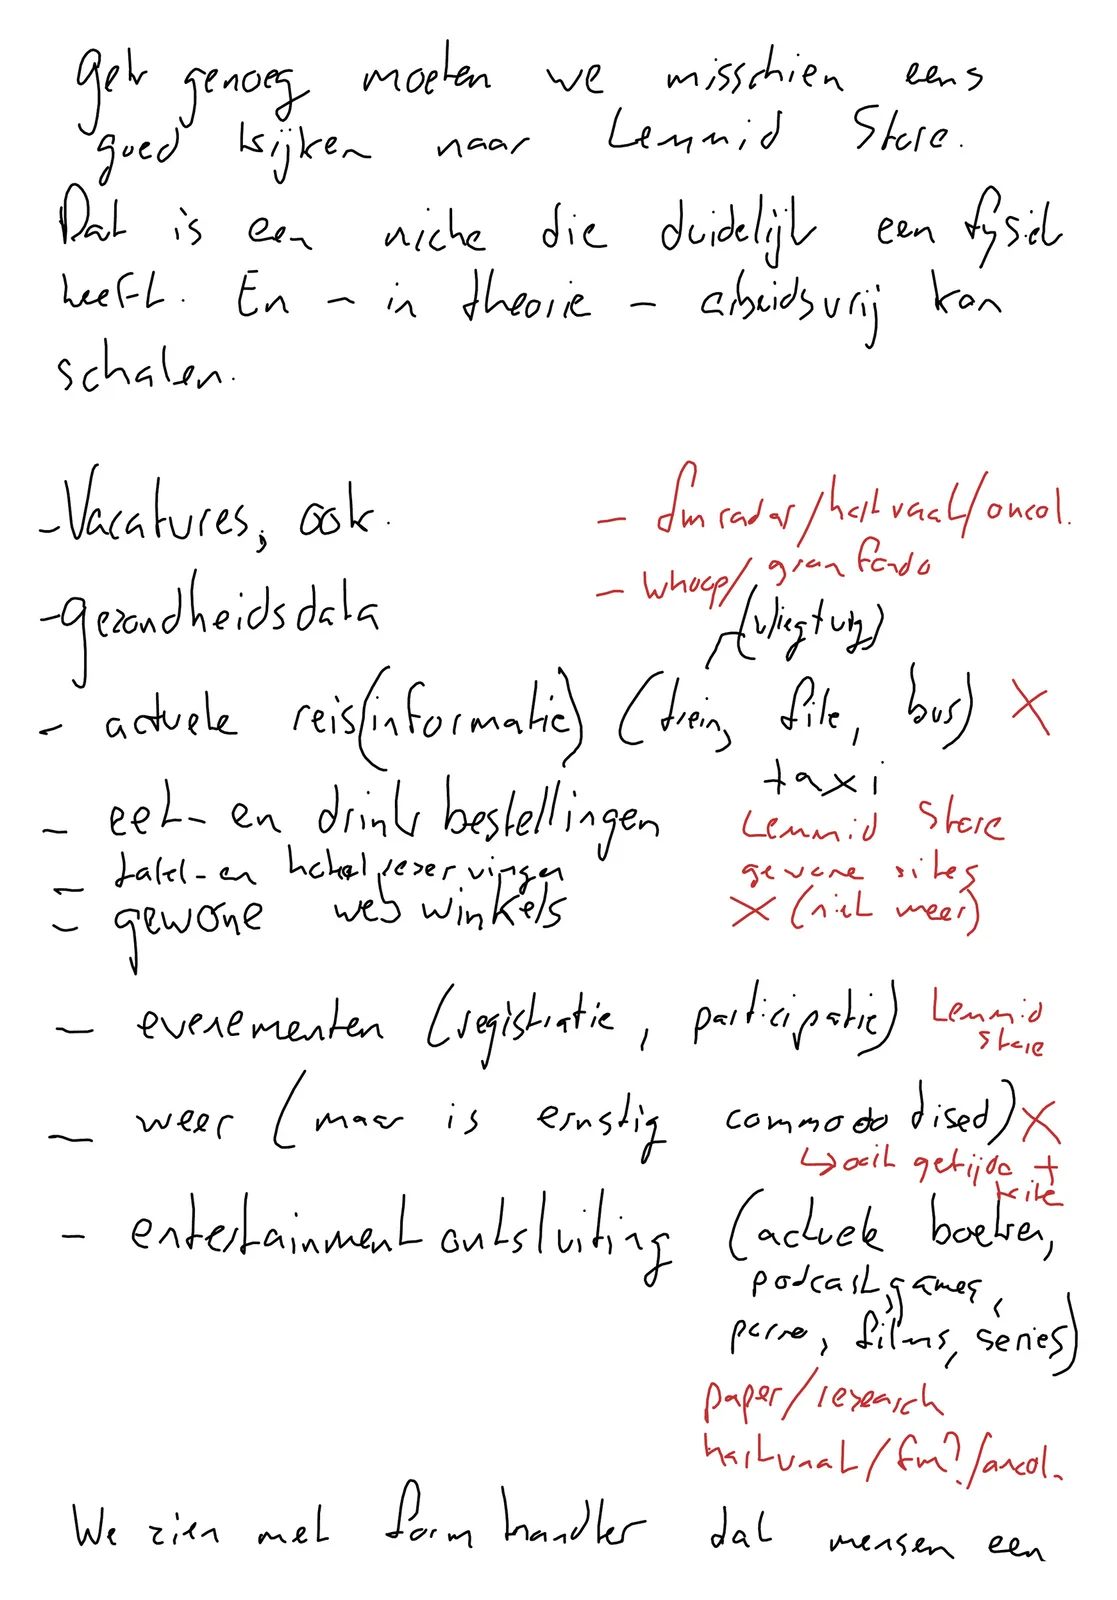 Gek genoeg moeten we misschien eens
goed kijken naar Lemmid Store.
Dat is een niche die duidelijk een fysiek
heeft. En - in theorie - arbeidsvrij kan
schalen.
- Vacatures, ook.
- fm radar/hartvaat/oncol.
- whoop/gran fondo
- gezondheidsdata
(vliegtuig)
- actuele reis(informatie) (trein, file, bus) X
taxi
- eet- en drinkbestellingen
Lemmid Store
- tafel- en hotelreserveringen
gewone sites
- gewone webwinkels
X (niet meer)
- evenementen (registratie, participatie)
Lemmid Store
- weer (maar is ernstig commodo dised) X
↳ ook getijde + kite
- entertainment ontsluiting (actuele boeken,
podcast, games,
porno, films, series)
paper/research
hartvaat/fm?/oncol.
We zien met form handler dat mensen een